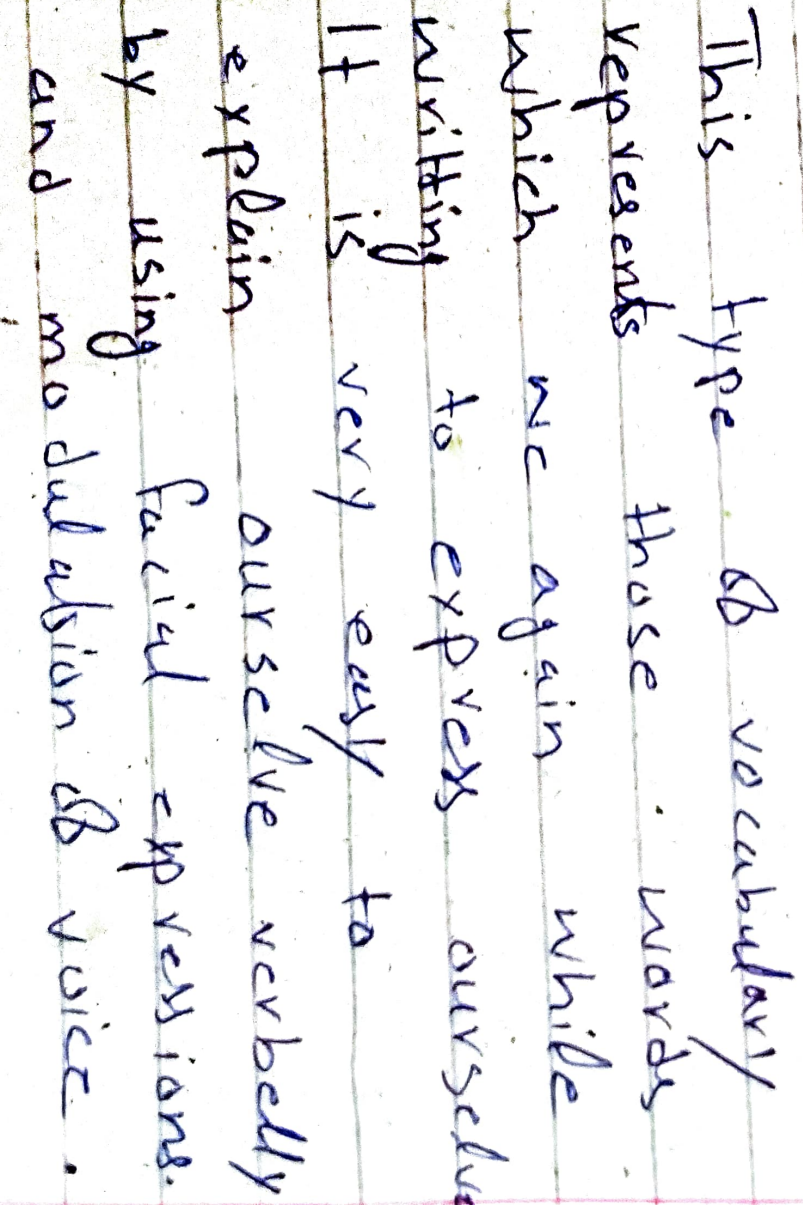 This type of vocabulary
represents those words
which we again while
writting to express ourselv
It is very easy to
explain ourselve verbelly
by using facial expressions.
and modulation of voice.